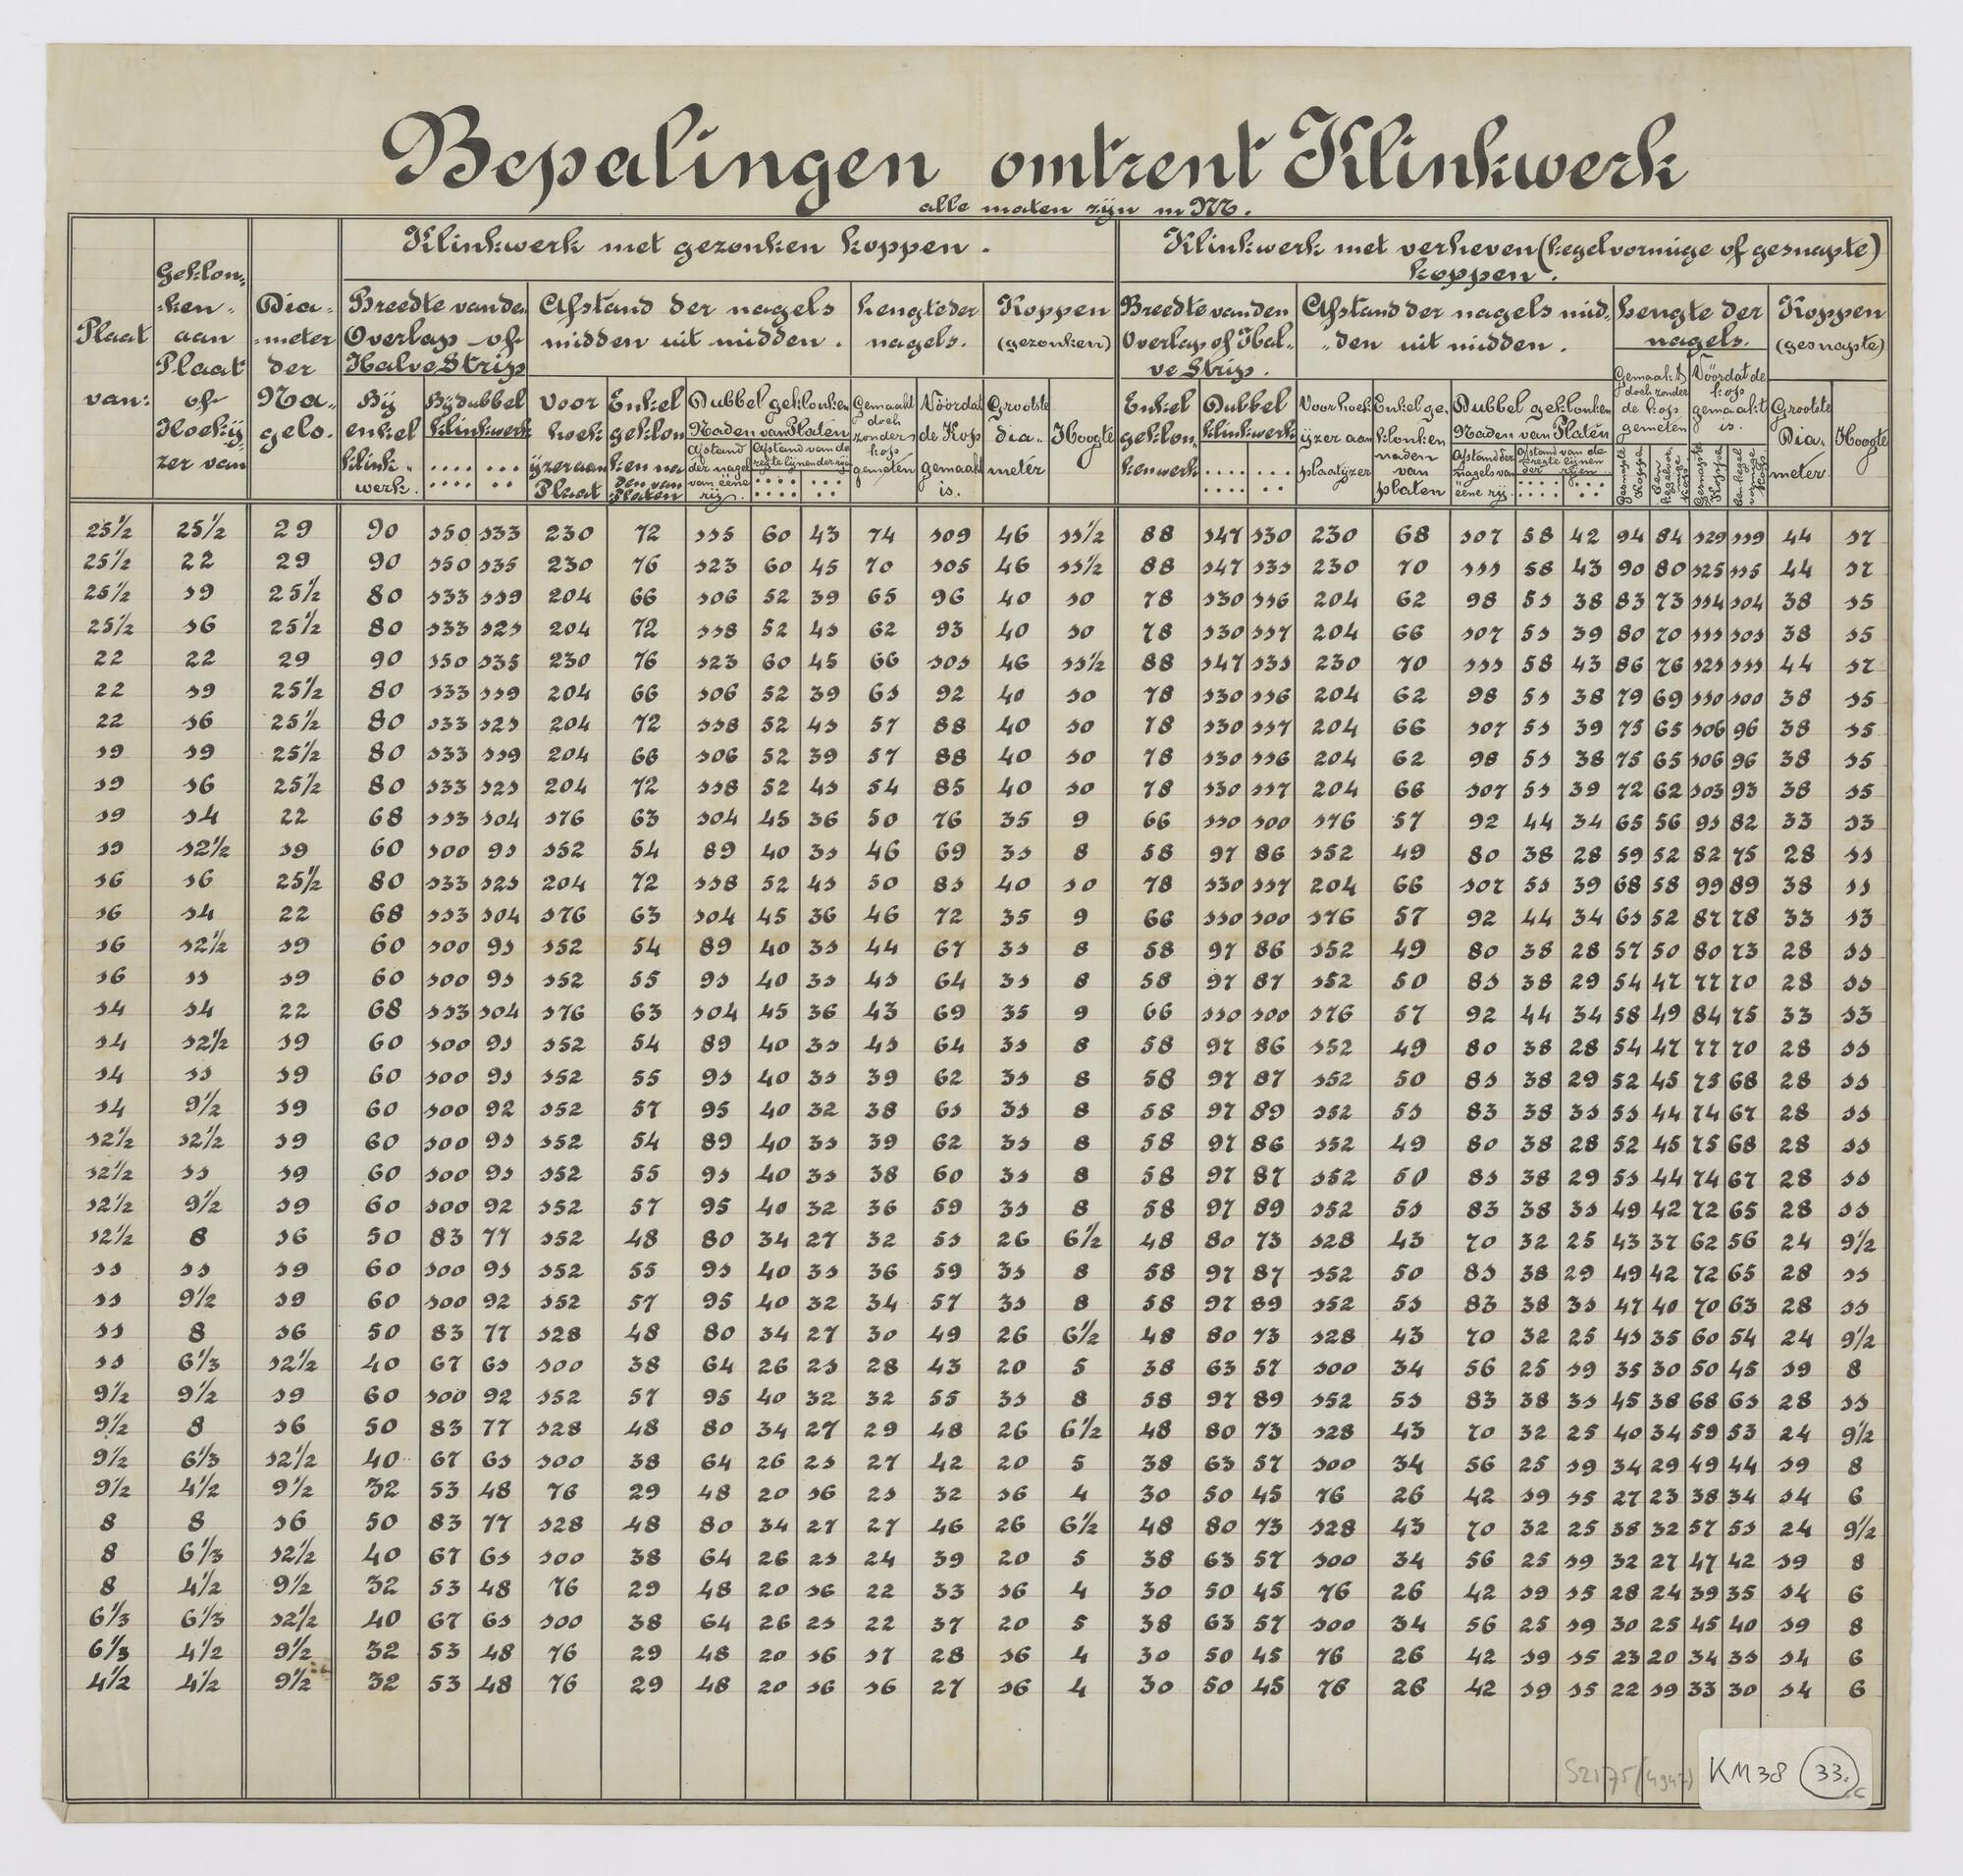 Bepalingen omtrent Klinkwerk
alle maten zijn in M.
Klinkwerk met gezonken koppen.
Klinkwerk met verheven (kegelvormige of gesnapte) koppen.
Plaat van:
Geklon-
-ken-
aan
Plaat
of
Hoekij
zer van
Dia-
-meter
der
Na-
gels.
Breedte van den
Overlap of
Halve Strip
Afstand der nagels
midden uit midden.
lengte der
nagels.
Koppen
(gezonken)
Breedte van den
Overlap of Hal-
ve Strip.
Afstand der nagels mid-
-den uit midden.
lengte der
nagels.
Koppen
(gesnapte)
Bij
enkel
klink-
werk.
Bij dubbel
klinkwerk
Voor
hoek
ijzer aan
Plaat
Enkel
geklon
ken na
den van
Platen
Dubbel geklonken
Naden van Platen
Afstand
der nagel
van ééne
rij.
Afstand van de
regte lijnen der rijen
Gemaakt
doch
zonder
kop
gemeten
Vóórdat
de Kop
gemaakt
is.
Grootste
dia-
meter
Hoogte
Enkel
geklon-
ken werk
Dubbel
klinkwerk
Voor hoek
ijzer aan
plaatijzer
Enkel ge-
klonken
naden
van
platen
Dubbel geklonken
Naden van Platen
Afstand der
nagels van
ééne rij
Afstand van de
regte lijnen
der rijen
Gemaakt
doch zonder
de kop
gemeten
Vóórdat de
kop
gemaakt
is.
Gesnapte
Koppe
Een
kegelvor
mige
Kop
Gesnapte
Koppe
Een kegel
vormige
Kop
Grootste
Dia-
meter
Hoogte
25½ 25½ 29 90 150 133 230 72 115 60 43 74 109 46 11½ 88 147 130 230 68 107 58 42 94 84 129 119 44 17
25½ 22 29 90 150 135 230 76 123 60 45 70 105 46 11½ 88 147 131 230 70 111 58 43 90 80 125 115 44 17
25½ 19 25½ 80 133 119 204 66 106 52 39 65 96 40 10 78 130 116 204 62 98 51 38 83 73 114 104 38 15
25½ 16 25½ 80 133 121 204 72 118 52 41 62 93 40 10 78 130 117 204 66 107 51 39 80 70 111 101 38 15
22 22 29 90 150 135 230 76 123 60 45 66 101 46 11½ 88 147 131 230 70 111 58 43 86 76 121 111 44 17
22 19 25½ 80 133 119 204 66 106 52 39 61 92 40 10 78 130 116 204 62 98 51 38 79 69 110 100 38 15
22 16 25½ 80 133 121 204 72 118 52 41 57 88 40 10 78 130 117 204 66 107 51 39 75 65 106 96 38 15
19 19 25½ 80 133 119 204 66 106 52 39 57 88 40 10 78 130 116 204 62 98 51 38 75 65 106 96 38 15
19 16 25½ 80 133 121 204 72 118 52 41 54 85 40 10 78 130 117 204 66 107 51 39 72 62 103 93 38 15
19 14 22 68 113 104 176 63 104 45 36 50 76 35 9 66 110 100 176 57 92 44 34 65 56 91 82 33 13
19 12½ 19 60 100 91 152 54 89 40 31 46 69 31 8 58 97 86 152 49 80 38 28 59 52 82 75 28 11
16 16 25½ 80 133 121 204 72 118 52 41 50 81 40 10 78 130 117 204 66 107 51 39 68 58 99 89 38 11
16 14 22 68 113 104 176 63 104 45 36 46 72 35 9 66 110 100 176 57 92 44 34 61 52 87 78 33 13
16 12½ 19 60 100 91 152 54 89 40 31 44 67 31 8 58 97 86 152 49 80 38 28 57 50 80 73 28 11
16 11 19 60 100 91 152 55 91 40 31 41 64 31 8 58 97 87 152 50 81 38 29 54 47 77 70 28 11
14 14 22 68 113 104 176 63 104 45 36 43 69 35 9 66 110 100 176 57 92 44 34 58 49 84 75 33 13
14 12½ 19 60 100 91 152 54 89 40 31 41 64 31 8 58 97 86 152 49 80 38 28 54 47 77 70 28 11
14 11 19 60 100 91 152 55 91 40 31 39 62 31 8 58 97 87 152 50 81 38 29 52 45 75 68 28 11
14 9½ 19 60 100 92 152 57 95 40 32 38 61 31 8 58 97 89 152 51 83 38 31 51 44 74 67 28 11
12½ 12½ 19 60 100 91 152 54 89 40 31 39 62 31 8 58 97 86 152 49 80 38 28 52 45 75 68 28 11
12½ 11 19 60 100 91 152 55 91 40 31 38 60 31 8 58 97 87 152 50 81 38 29 51 44 74 67 28 11
12½ 9½ 19 60 100 92 152 57 95 40 32 36 59 31 8 58 97 89 152 51 83 38 31 49 42 72 65 28 11
12½ 8 16 50 83 77 152 48 80 34 27 32 51 26 6½ 48 80 73 128 43 70 32 25 43 37 62 56 24 9½
11 11 19 60 100 91 152 55 91 40 31 36 59 31 8 58 97 87 152 50 81 38 29 49 42 72 65 28 11
11 9½ 19 60 100 92 152 57 95 40 32 34 57 31 8 58 97 89 152 51 83 38 31 47 40 70 63 28 11
11 8 16 50 83 77 128 48 80 34 27 30 49 26 6½ 48 80 73 128 43 70 32 25 41 35 60 54 24 9½
11 6⅓ 12½ 40 67 61 100 38 64 26 21 28 43 20 5 38 63 57 100 34 56 25 19 35 30 50 45 19 8
9½ 9½ 19 60 100 92 152 57 95 40 32 32 55 31 8 58 97 89 152 51 83 38 31 45 38 68 61 28 11
9½ 8 16 50 83 77 128 48 80 34 27 29 48 26 6½ 48 80 73 128 43 70 32 25 40 34 59 53 24 9½
9½ 6⅓ 12½ 40 67 61 100 38 64 26 21 27 42 20 5 38 63 57 100 34 56 25 19 34 29 49 44 19 8
9½ 4½ 9½ 32 53 48 76 29 48 20 16 21 32 16 4 30 50 45 76 26 42 19 15 27 23 38 34 14 6
8 8 16 50 83 77 128 48 80 34 27 27 46 26 6½ 48 80 73 128 43 70 32 25 38 32 57 51 24 9½
8 6⅓ 12½ 40 67 61 100 38 64 26 21 24 39 20 5 38 63 57 100 34 56 25 19 32 27 47 42 19 8
8 4½ 9½ 32 53 48 76 29 48 20 16 22 33 16 4 30 50 45 76 26 42 19 15 28 24 39 35 14 6
6⅓ 6⅓ 12½ 40 67 61 100 38 64 26 21 22 37 20 5 38 63 57 100 34 56 25 19 30 25 45 40 19 8
6⅓ 4½ 9½ 32 53 48 76 29 48 20 16 17 28 16 4 30 50 45 76 26 42 19 15 23 20 34 31 14 6
4½ 4½ 9½ 32 53 48 76 29 48 20 16 16 27 16 4 30 50 45 76 26 42 19 15 22 19 33 30 14 6
S2175(4947) KM38 33.c